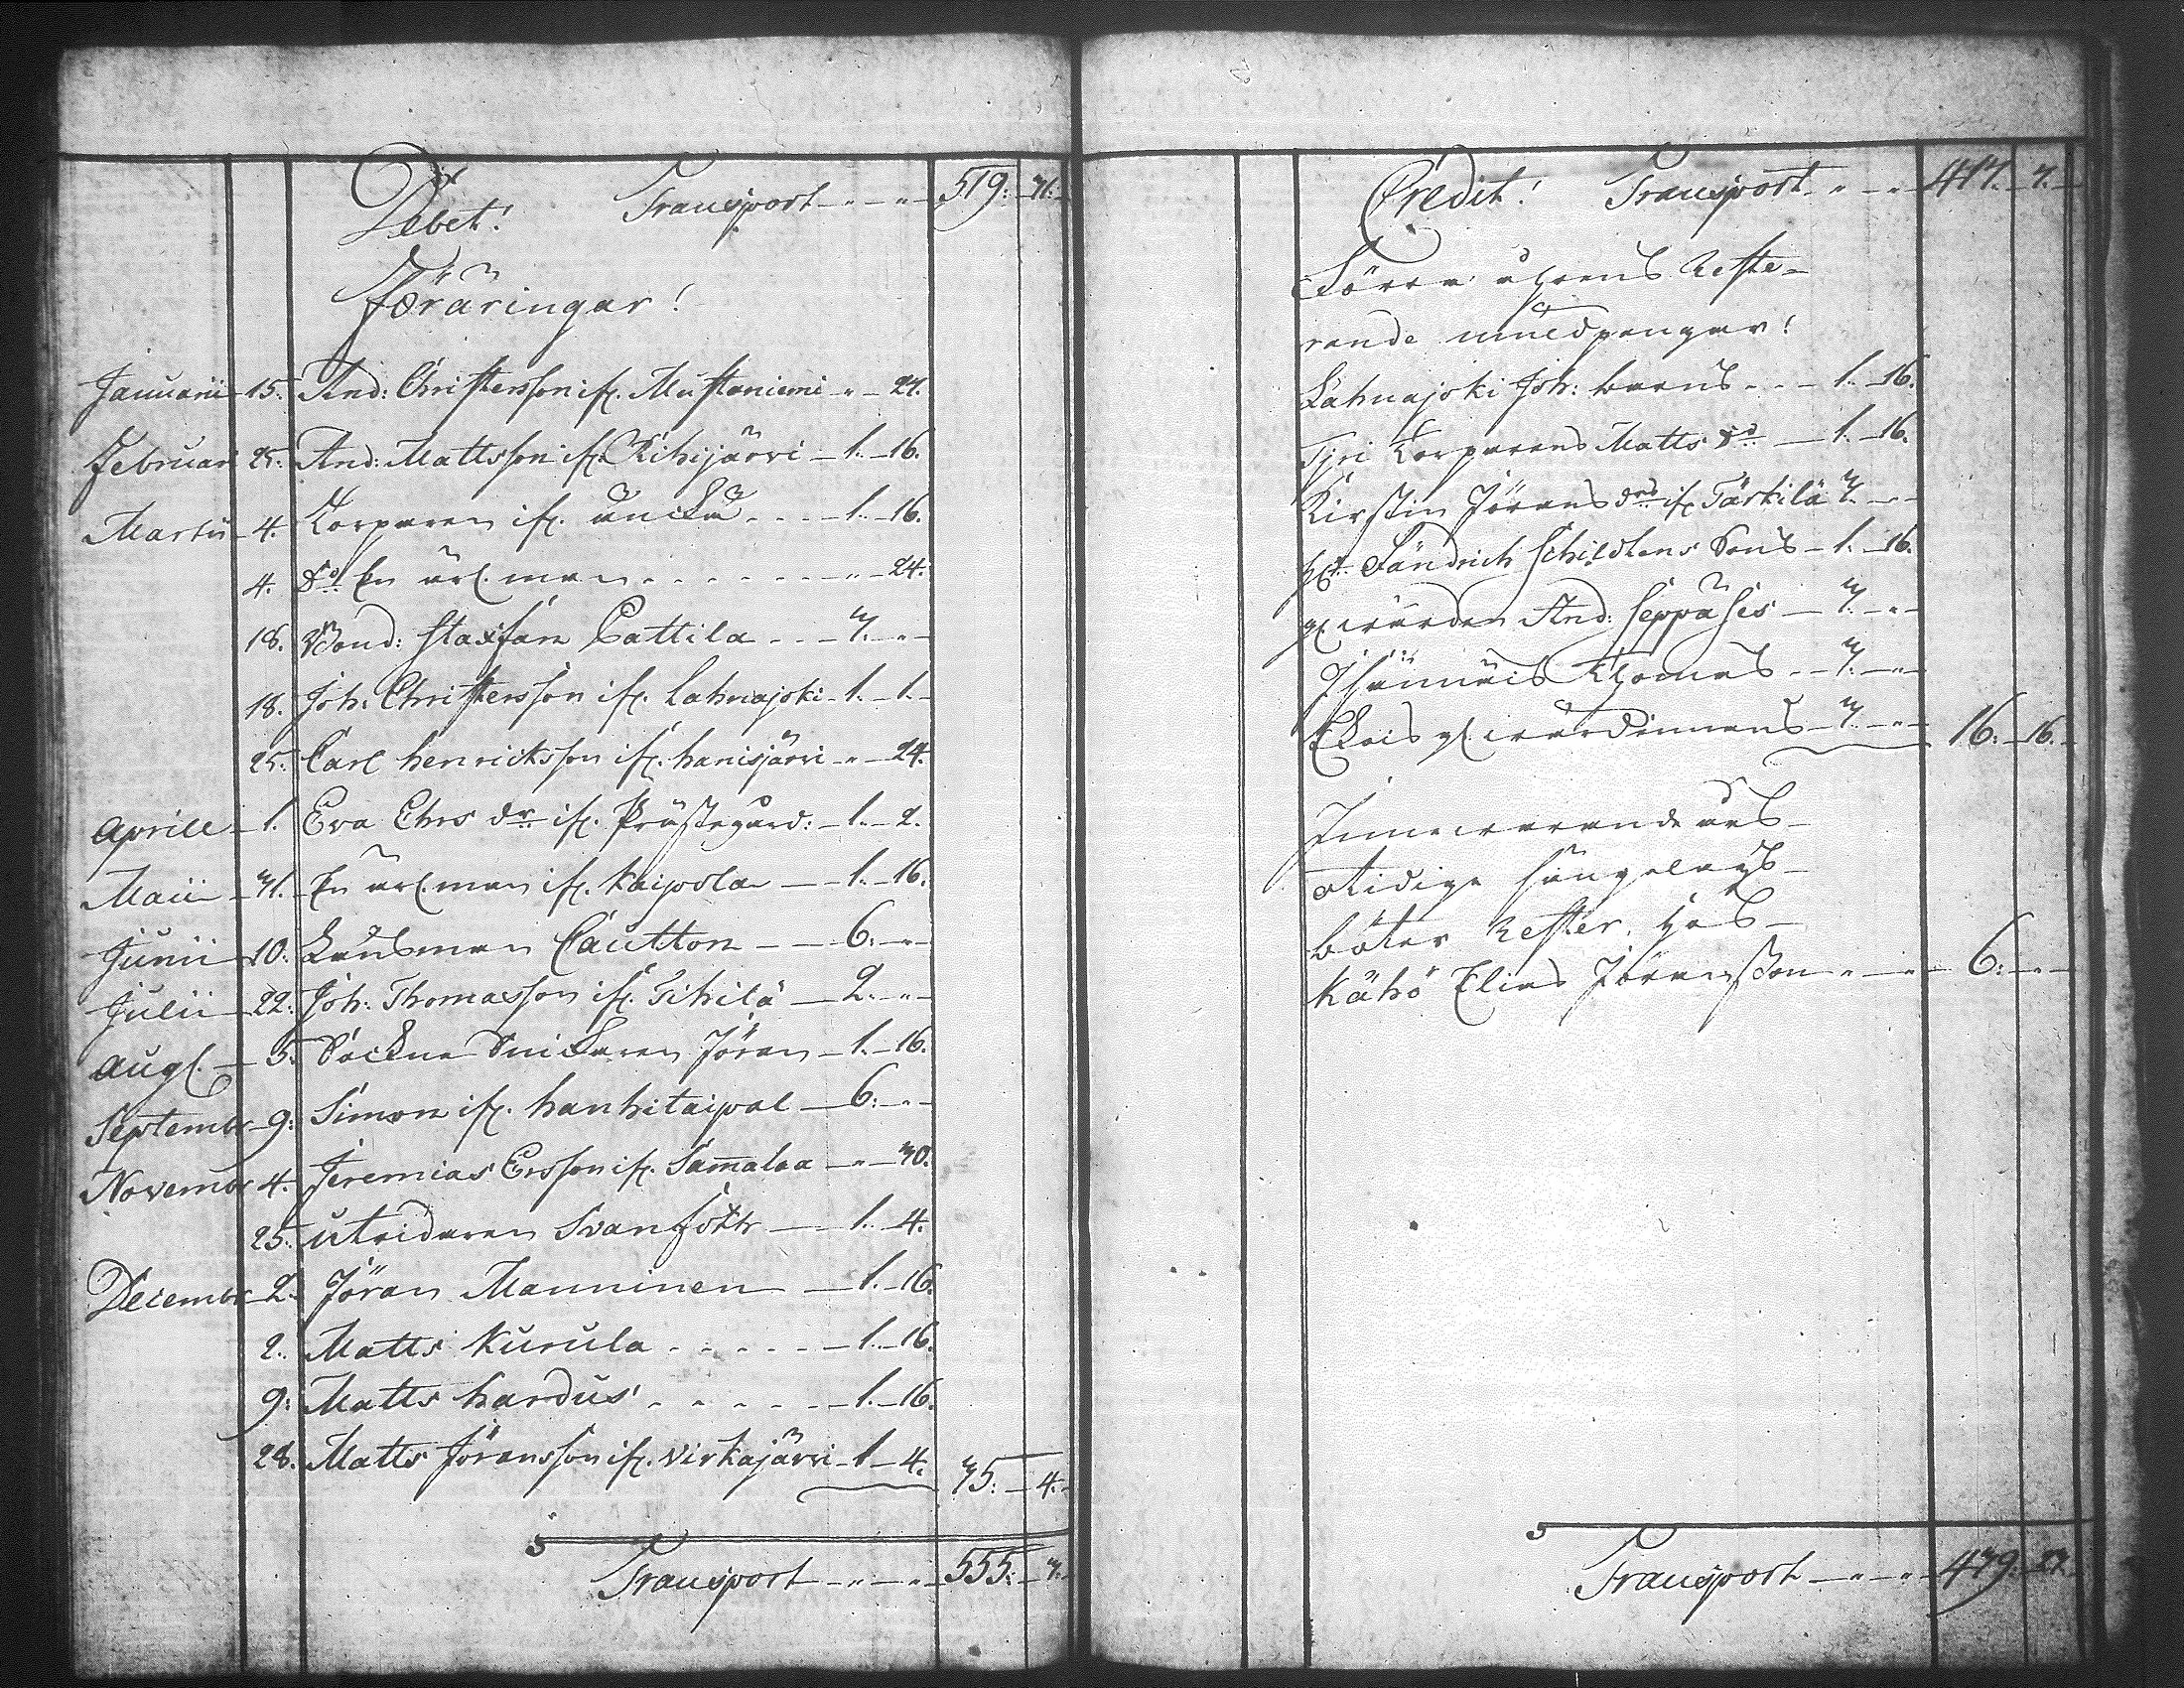 Debet! Transport - " - " - 519: - 31: -
Föräringar!
Januarii - 15. And: Christersson ifr. Mustaniemi - " - 24.
Februari 25. And: Mattsson ifr. Kihijärvi - 1. - 16.
Martii - 4. Torparen ifr. - - - 1. - 16.
4. Do En ärl. man - - - " - 24.
18. Bond: Staffan Cattila - - - 3. - " -
18. Joh: Christersson ifr. Lahnajoki - 1. - 1. -
25. Carl Henricksson ifr. Hanisjärvi - " - 24.
Aprill - 1. Eva Chrs dr ifr. Prästegård: - 1. - 2.
Maii - 31. En ärl. man ifr. Kaipola - 1. - 16.
Junii 10. Länsman Cautton - - 6: - " -
Julii - 22. Joh: Thomasson ifr. Tihilä - 2. - " -
Aug. - 5. Sockne Snickaren Jöran - 1. - 16.
Septembr - 9: Simon ifr. Hanhitaipal - 6: - " -
Novembr 4. Jeremias Ersson ifr. Sam̅alaa - " - 30.
25. Utridaren Svanfött - 1. - 4.
Decembr - 2. Jöran Manninen - 1. - 16.
2. Matts Kurula - - - - 1. - 16.
9: Matts Hardus - - - - 1. - 16.
28. Matts Jöransson ifr. Virkajärvi - 1 - 4.
35: - 4. -
Transport - " - " - 555: - 3. -
Credit! Transport - " - " - 417. - 7. -
Förra åhrens Reste-
rande mulspengar!
Lahnajoki Joh: barns - - - 1. - 16.
Torparens Matts Do - 1. - 16.
Kirstin Jörans drs ifr Tärkilä 3. - " -
Fändrich Schildtens Sons - 1. - 16.
gl. värden And: Seppä - 3. - " -
Thomas - - 3. - " -
gl. värdinnans - 3. - " -
16: - 16. -
Innewarande års-
tidige sängelags-
böter Rester, hos -
Kähö Elias Jöransson - " - " - 6: - " -
Transport - " - " - 439: 23. -